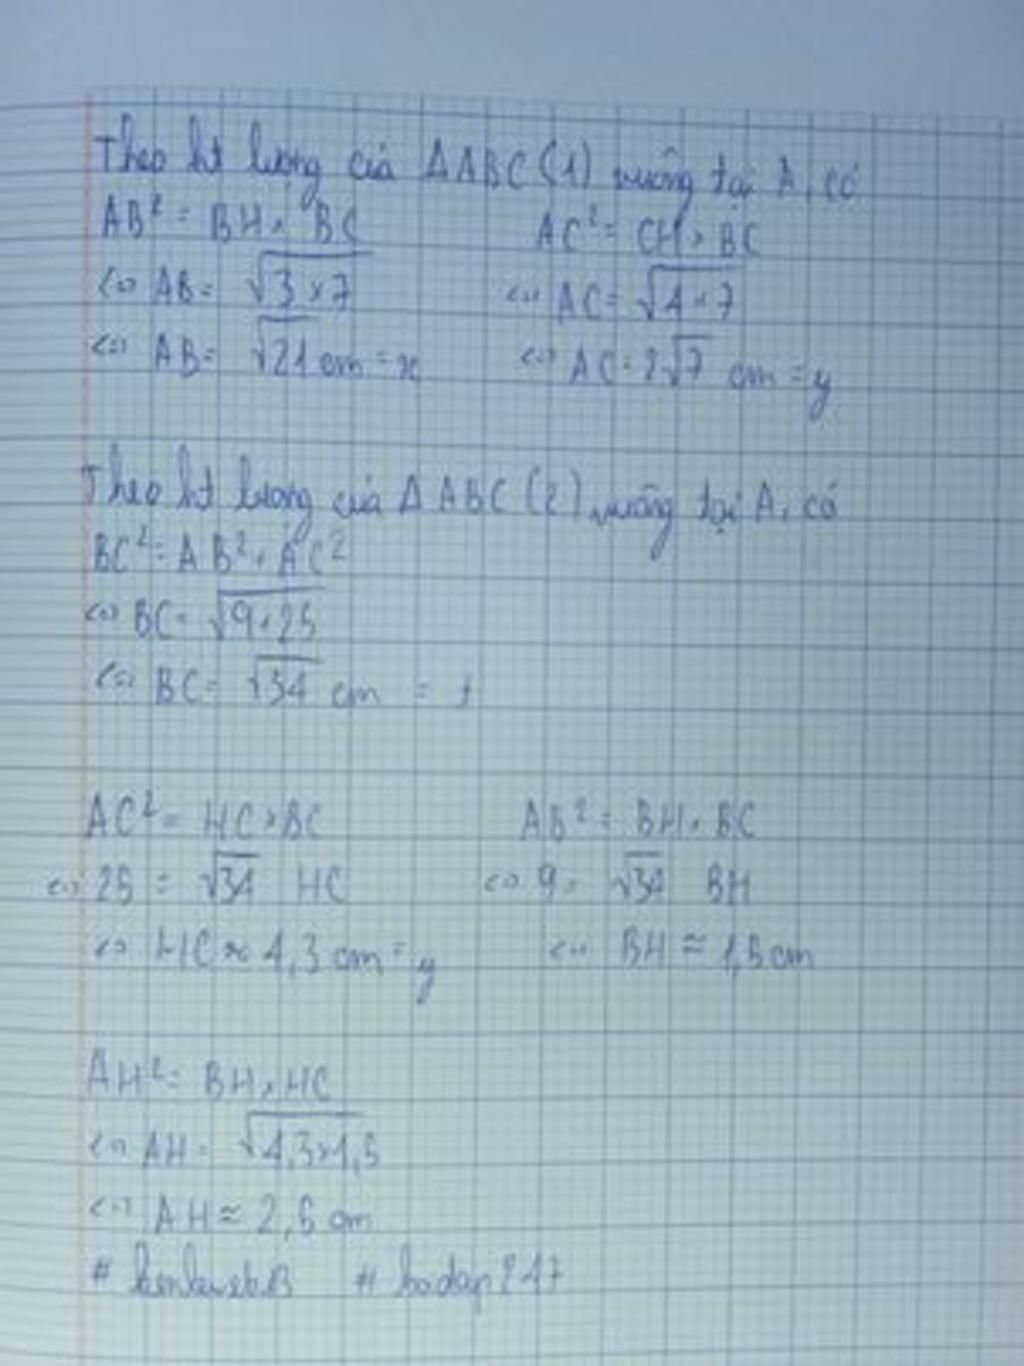 Theo ht lượng của ΔABC (1) vuông tại A, có
AB² = BH × BC AC² = CH × BC
<=> AB = √3×7 <=> AC = √4×7
<=> AB = √21 cm = x <=> AC = 2√7 cm = y
Theo ht lượng của ΔABC (2) vuông tại A, có
BC² = AB² + AC²
<=> BC = √9+25
<=> BC = √34 cm =
AC² = HC × BC AB² = BH × BC
<=> 25 = √34 HC <=> 9 = √34 BH
<=> HC ≈ 4,3 cm = y <=> BH ≈ 1,5 cm
AH² = BH × HC
<=> AH = √4,3×1,5
<=> AH ≈ 2,5 cm
#